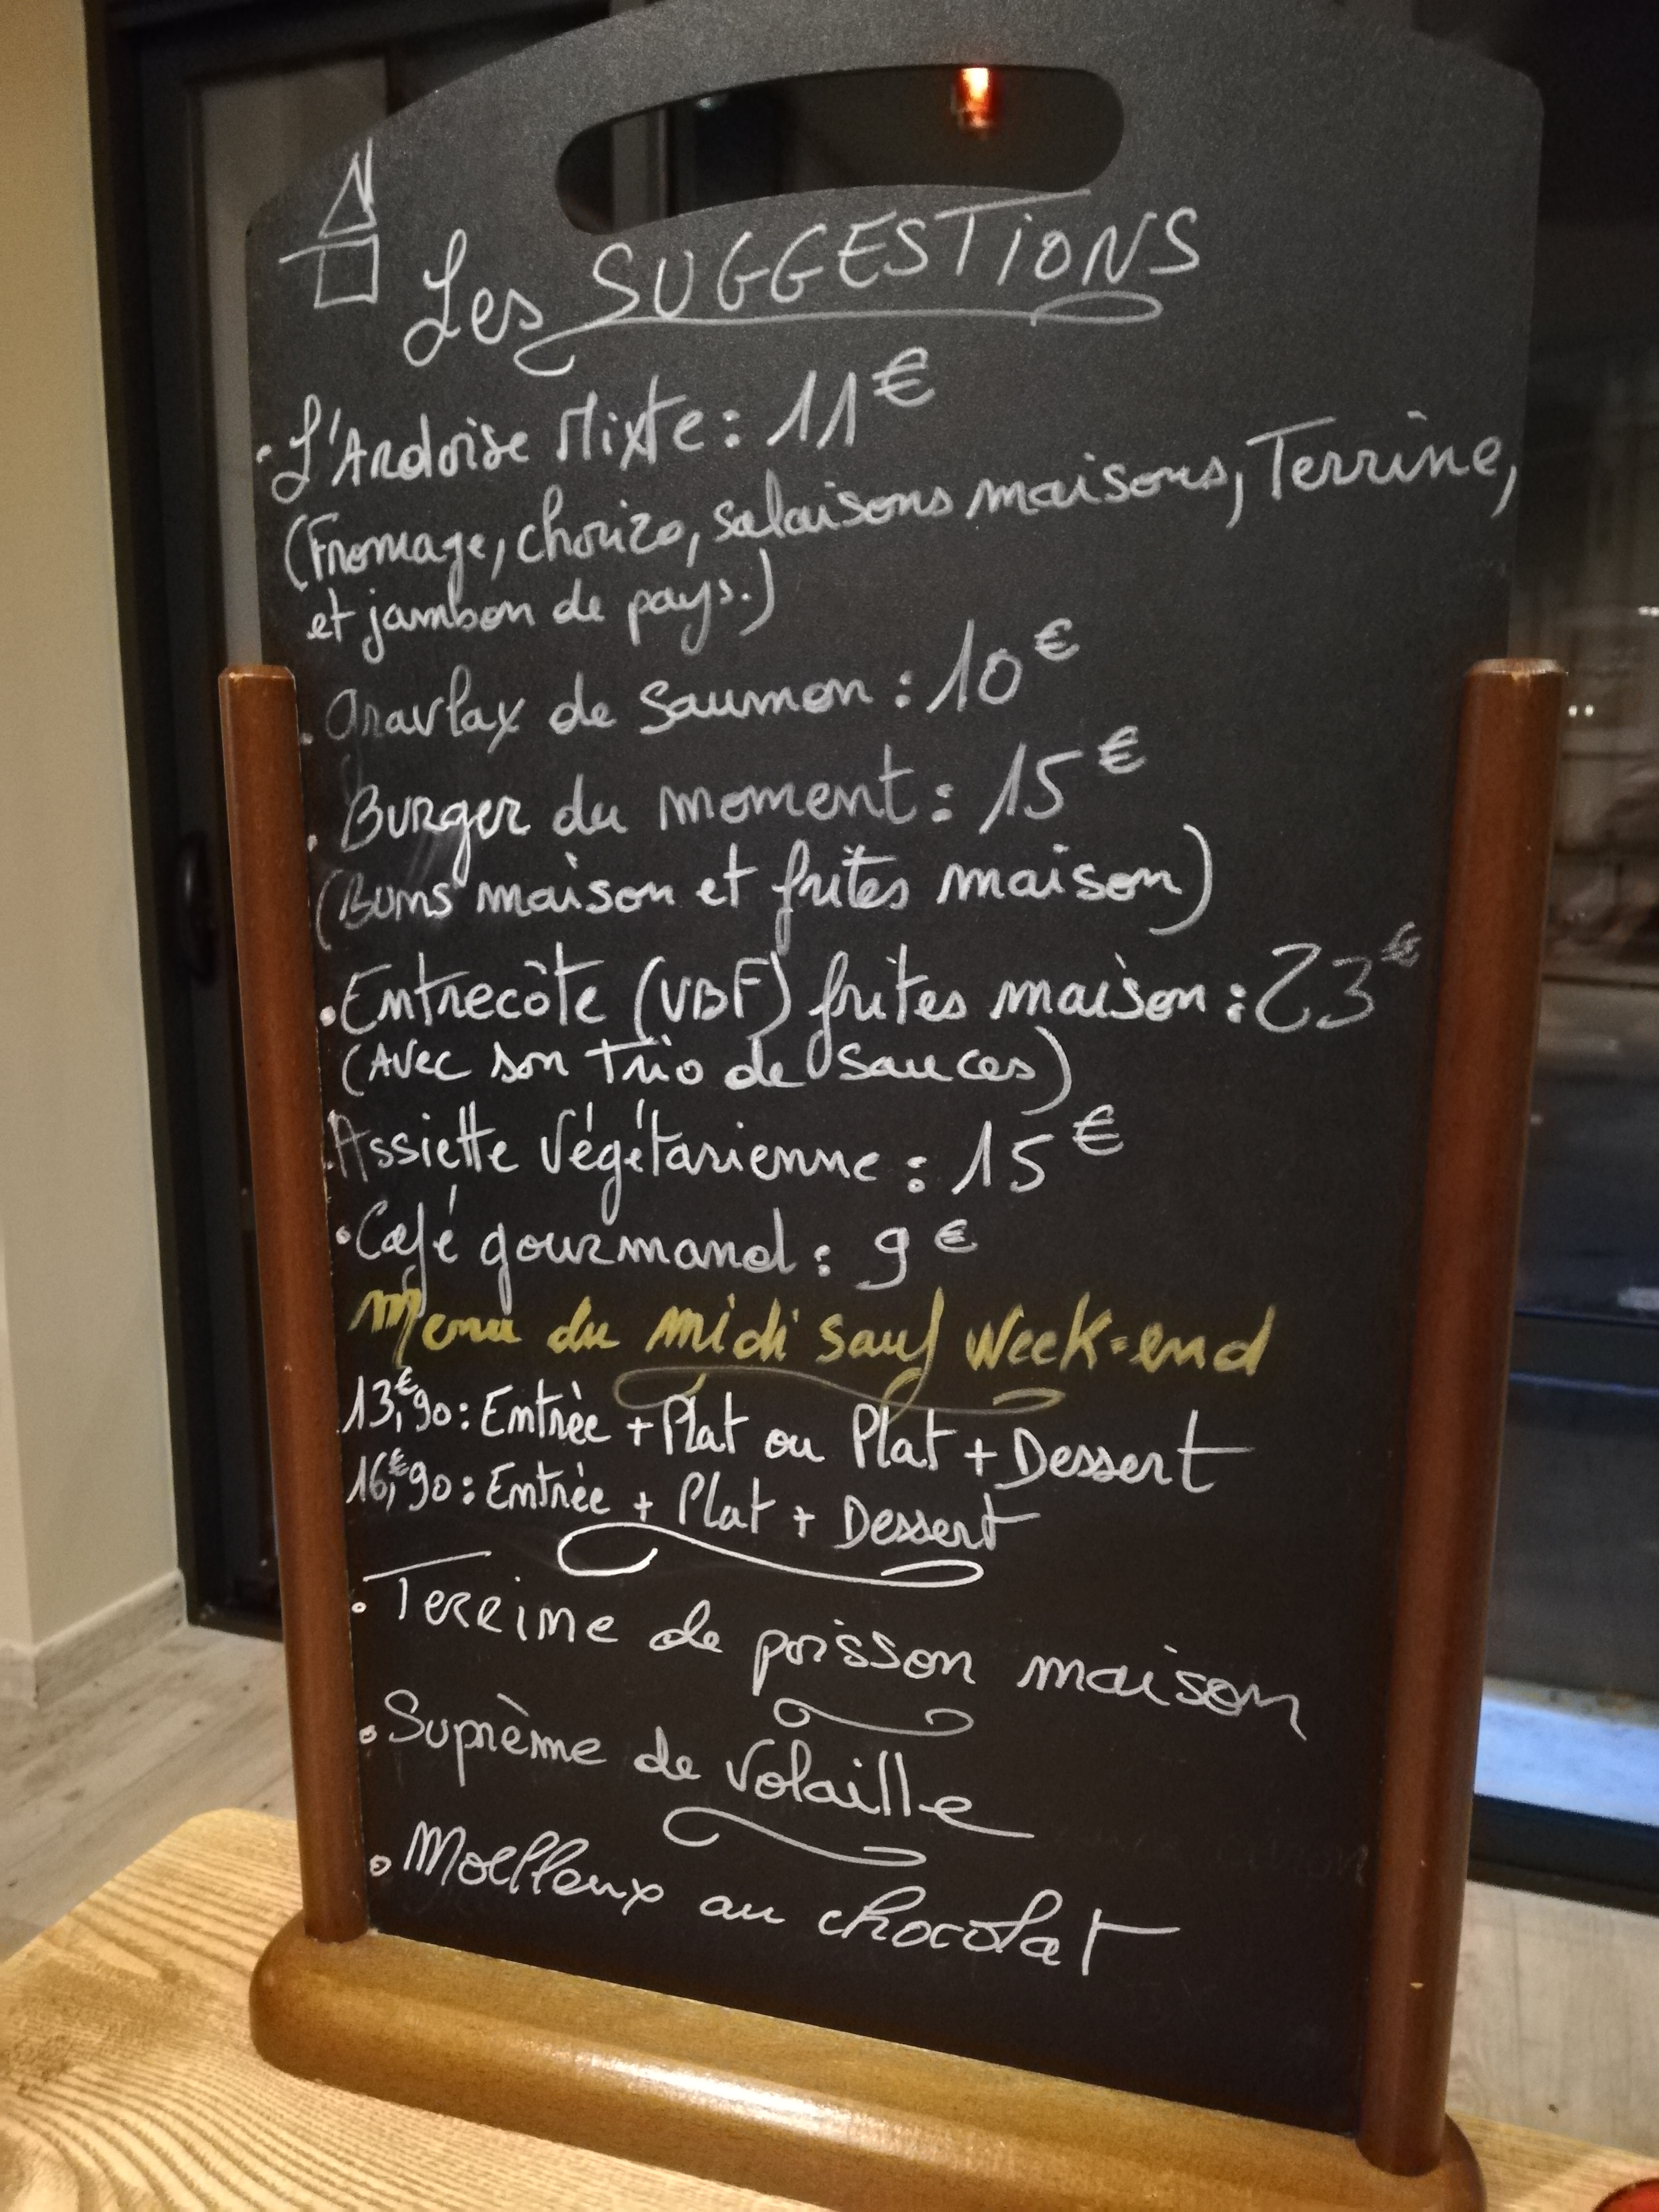 Les SUGGESTIONS
· L'Ardoise Mixte : 11€
(Fromage, chorizo, salaisons maisons, Terrine,
et jambon de pays.)
. Gravlax de saumon : 10€
. Burger du moment : 15€
(Buns maison et frites maison)
. Entrecôte (VBF) frites maison : 23€
(Avec son trio de sauces)
. Assiette végétarienne : 15€
· Café gourmand : 9€
Menu du midi sauf week-end
13,€90 : Entrée + Plat ou Plat + Dessert
16,€90 : Entrée + Plat + Dessert
. Terrine de poisson maison
. Suprème de volaille
. Moelleux au chocolat